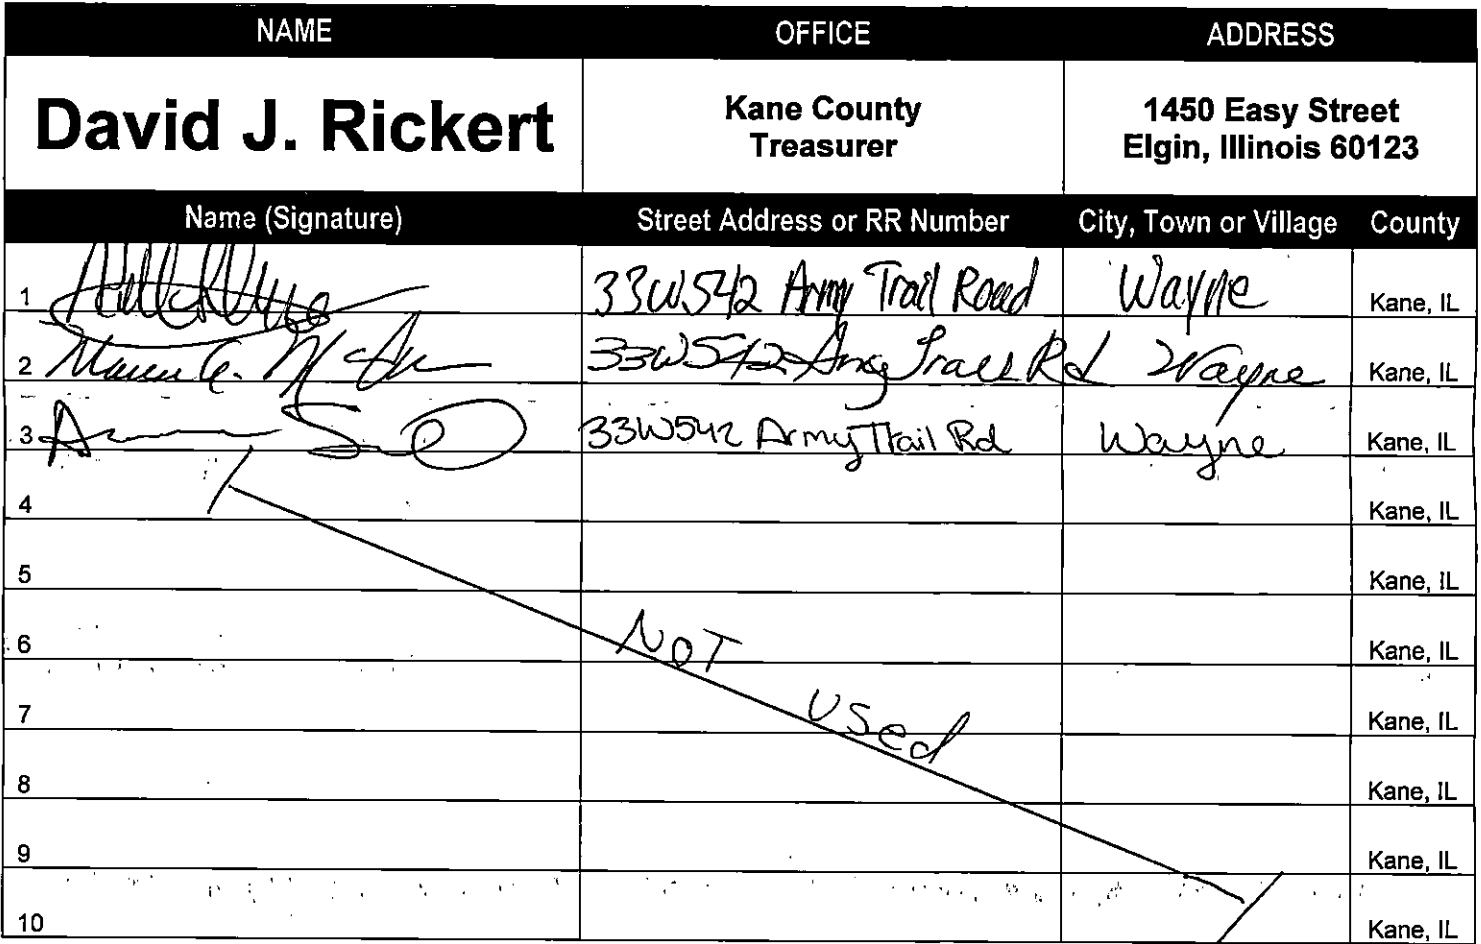 NAME OFFICE ADDRESS
David J. Rickert Kane County Treasurer 1450 Easy Street Elgin, Illinois 60123
Name (Signature) Street Address or RR Number City, Town or Village County
1 33W542 Army Trail Road Wayne Kane, IL
2 33W542 Army Trail Rd Wayne Kane, IL
3 33W542 Army Trail Rd Wayne Kane, IL
4 Kane, IL
5 Kane, IL
6 NOT Kane, IL
7 Used Kane, IL
8 Kane, IL
9 Kane, IL
10 Kane, IL